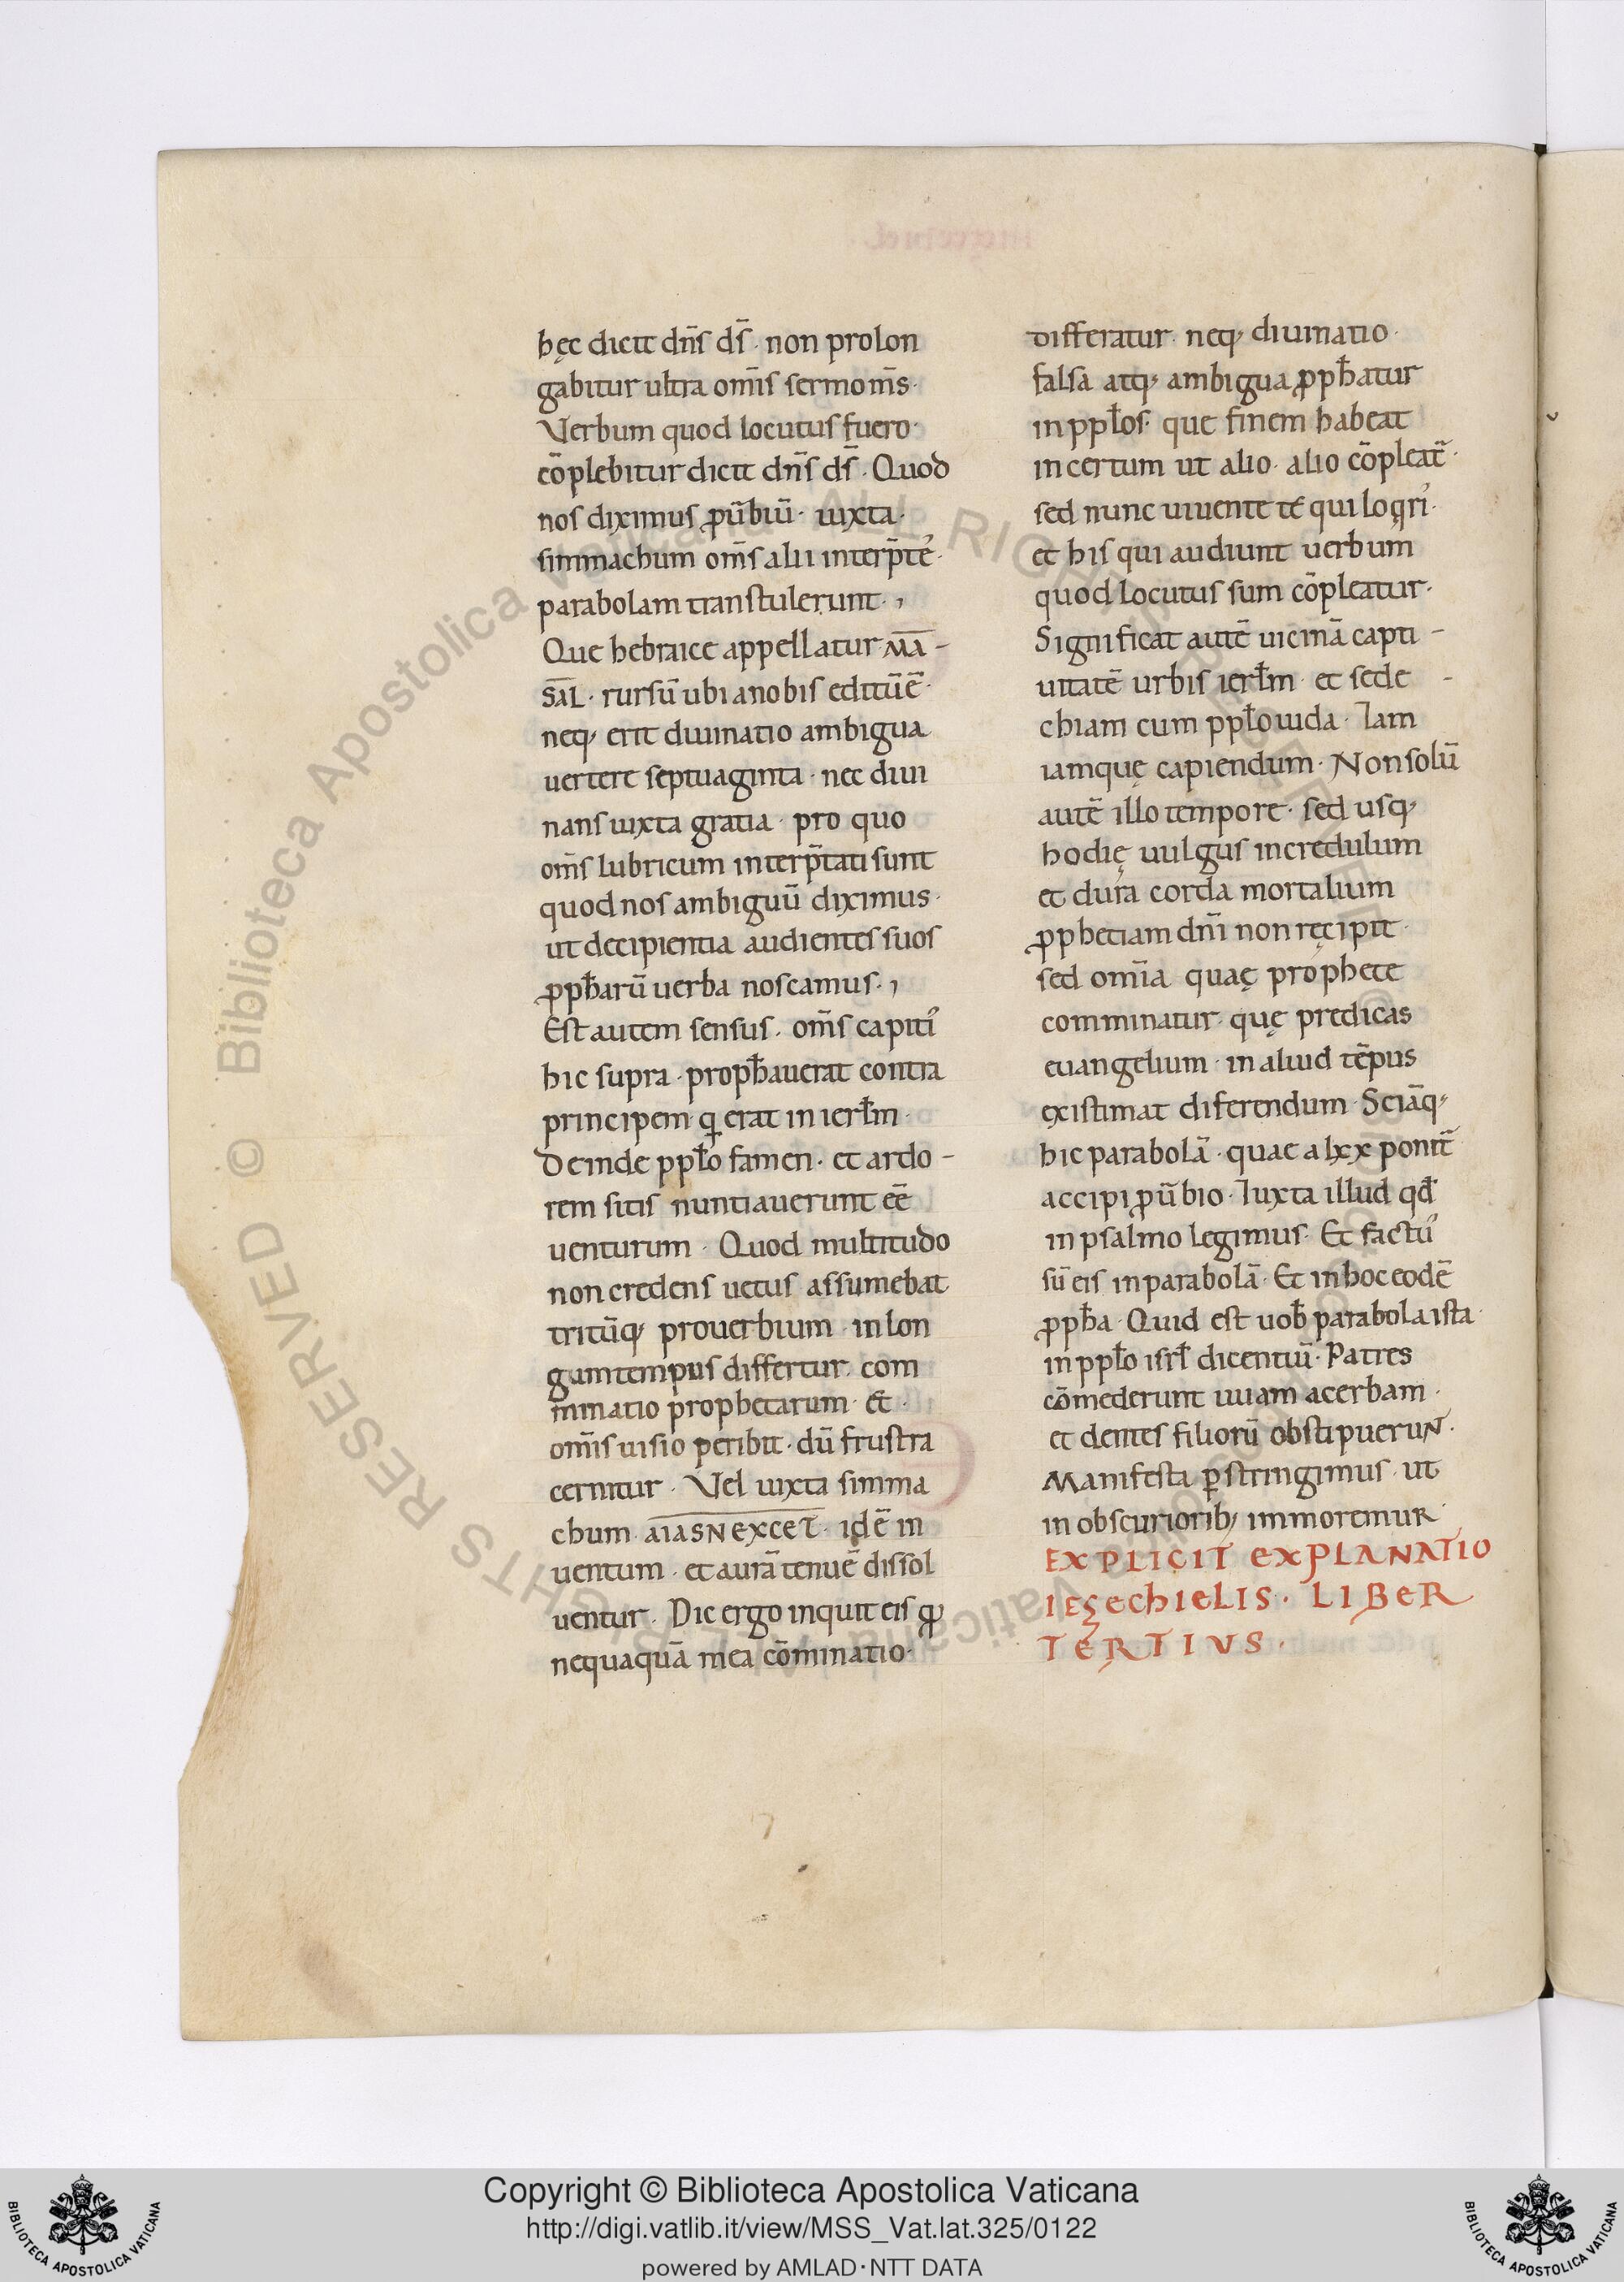 hęc dicit dñs ds̄ · non prolon
gabitur ultra om̄is sermom̄s ·
Verbum quod locutus fuero ·
cōplebitur dicit dñs ds̄ · Quod
nos diximus ꝓū̄biū · iuxta ·
simmachum om̄s alii interp̄te᷒ ·
parabolam transtulerunt · ,
Que hebraice appellatur M̄A̅ -
S̅A̅L · rursū ubi a nobis editū ē ·
neq; erit diuinatio ambigua
uertere septuaginta · nec diui
nans iuxta gratia · pro quo
om̄s lubricum interp̄tati sunt
quod nos ambiguū diximus ·
ut decipientia audientes suos
ꝓph̄arū uerba noscamus · ,
Est autem sensus · om̄s capiti᷒
hic supra · proph̄auerat contra
principem q̣ erat in ierl̄m ·
Deinde ppl̄o famen · et ardo -
rem sitis nuntiauerunt eē
uenturum · Quod multitudo
non credens uetus assumebat
tritūq; prouerbium · in lon
gum tempus differtur · com
minatio prophetarum · et ·
om̄is uisio peribit · dū frustra
cernitur · Vel iuxta simma
chum · AIASNEXCET · idē in
uentum · et aurā tenuē dissol
uentur · Dic ergo inquit eis ꝙ
nequaquā mea cōminatio ·
differatur · neq; diuinatio ·
falsa atq; ambigua ꝓph̄atur
in ppl̄os · que finem habeat
incertum ut alio · alio cōpleat̄ ·
sed nunc uiuente te qui loqri᷒ ·
et his qui audiunt uerbum
quod locutus sum cōpleatur ·
Significat autē uicinā capti -
uitatē urbis ierl̄m · et sede -
chiam cum ppl̄o iuda · Iam
iamquę capiendum · Non solū
autē illo tempore · sed usq;
hodię uulgus incredulum
et dura corda mortalium
ꝓphetiam dñi non ręcipit ·
sed om̄ia quaę prophete
comminatur · quę predicas
euangelium · in aliud tēpus
existimat diferendum · Sciāq;
hic parabolā · quae a lxx ponit̄
accipi ꝓū̄bio · Iuxta illud qđ
in psalmo legimus · Et factu᷒
sū eis in parabolā · Et in hoc eodē
ꝓph̄a · Quid est uob̄ parabola ista ·
in ppl̄o isrl̄ dicentiū · Patres
cōmederunt uuam acerbam ·
et dentes filiorū obstipuerunt ·
Manifesta ꝑstringimus · ut
in obscuriorib; immoremur
EXPLICIT EXPLANATIO
IEZECHIELIS · LIBER
TERTIVS ·
© Biblioteca Apostolica Vaticana ALL RIGHTS RESERVED
Copyright © Biblioteca Apostolica Vaticana
http://digi.vatlib.it/view/MSS_Vat.lat.325/0122
powered by AMLAD·NTT DATA
BIBLIOTECA APOSTOLICA VATICANA
BIBLIOTECA APOSTOLICA VATICANA